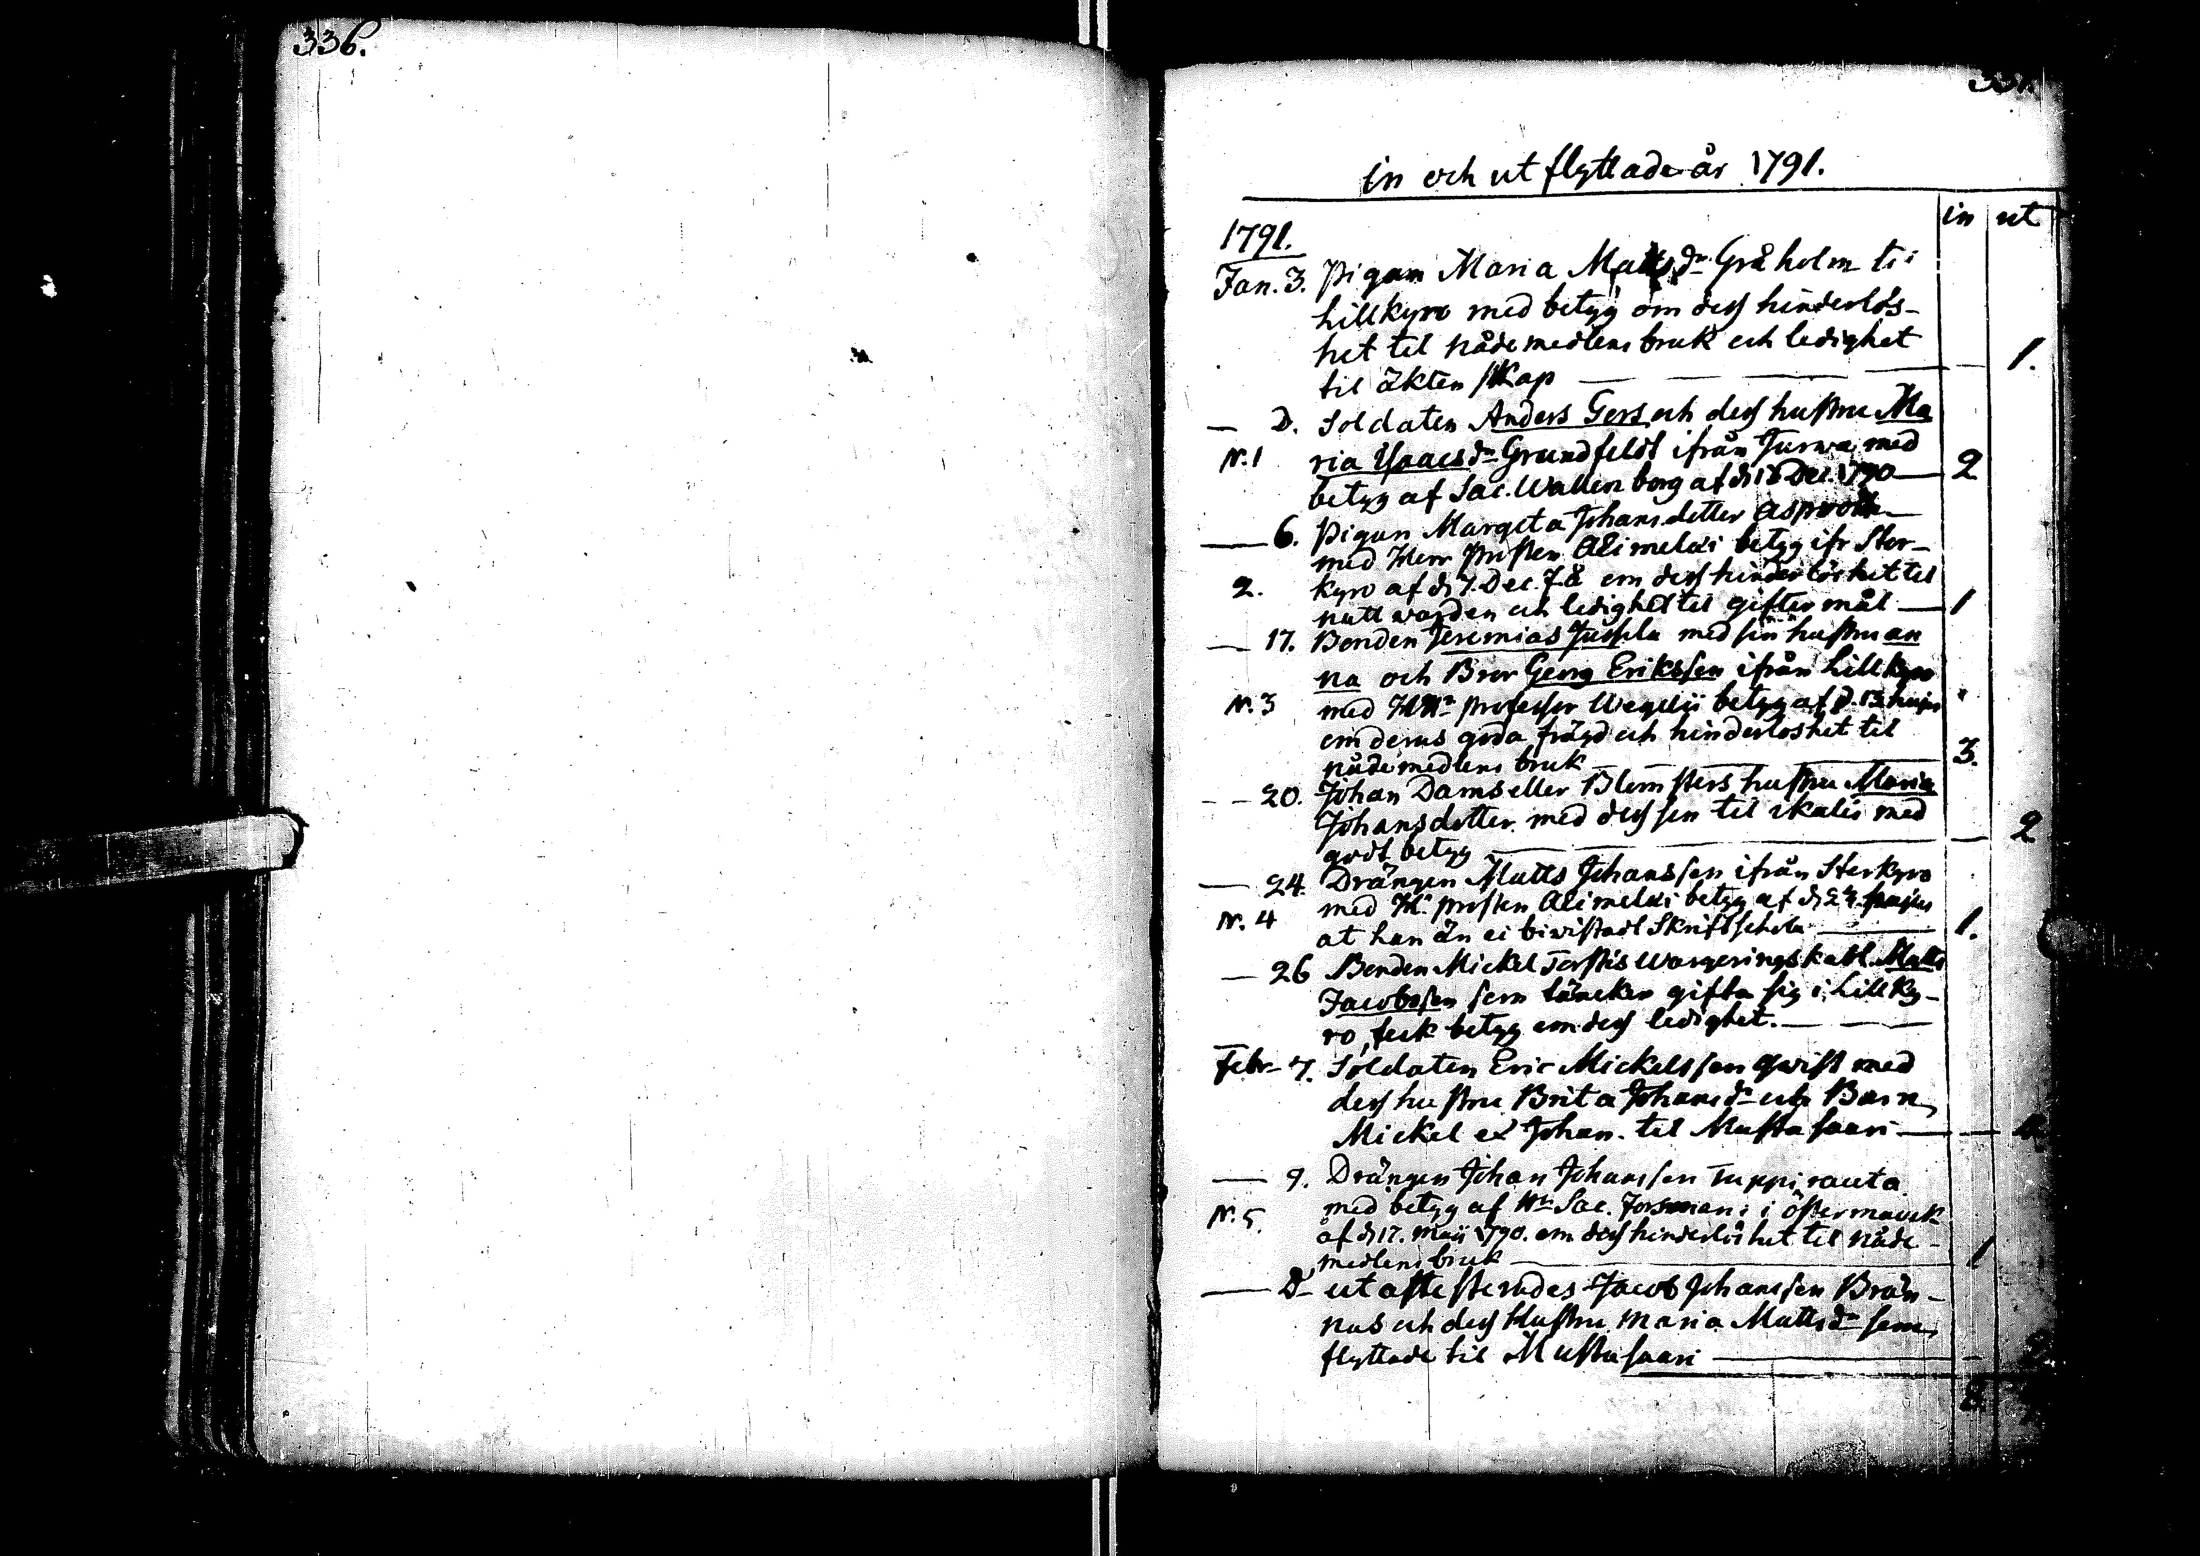 336.
337.
in och ut flyttade år 1791.
in ut
1791.
Jan. 3. Pigan Maria Matsdr Gråholm til
Lillkyro med betyg om dess hinderlös-
het til nådemedlens bruk och ledighet
til äktenskap — 1.
— D. Soldaten Anders Gers och dess hustru Ma
N.1 ria Isaacsdr Grundfeldt ifrån Jurwa med
betyg af Sac. Wallenborg af d. 18 Dec. 1790 — 2
— 6. Pigan Margeta Johansdotter
med Herr Prosten Alimelæi betyg ifr Stor-
2. kyro af d. 7. Dec. f. å. om dess hinderlöshet til
nattwarden och ledighet til giftermål — 1
— 17. Bonden Jeremias Jussila med sin hustru an
na och Bror Georg Eriksson ifrån Lillkyro
N. 3 med Hr Professor Wegelii betyg af d. 13 hujus
om deras goda frägd och hinderlöshet til
nådemedlens bruk — 3.
— 20. Johan Dams eller Blomsters hustru Maria
Johansdotter med dess son til Ikalis med
godt betyg — 2
— 24. Drängen Matts Johansson ifrån Storkyro
med H. Prosten Alimelæi betyg af d. 24 hujus
N. 4 at han än ei biwistadt Skriftschola — 1.
— 26 Bonden Mickel Torstis Wargeringskarl Matts
Jacobsson som täncker gifta sig i Lillky-
ro, feck betyg om dess ledighet. —
Febr. 7. Soldaten Eric Mickelsson Qwist med
dess hustru Brita Johansdr och Barn
Mickel et Johan. til Mustasaari — 4.
— 9. Drängen Johan Johansson Tuppirauta
med betyg af Hr Sac. Forsman i Östermark
N. 5. af d. 17. Maii 1790. om dess hinderlöshet til nåde-
medlens bruk — 1
— D. utattesterades Jacob Johansson Brän-
nas och dess Hustru Maria Mattsdr som
flyttade til Mustasaari — 2.
8.